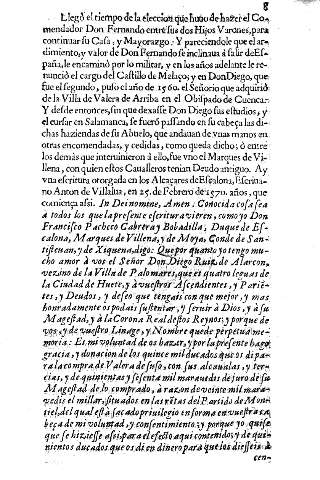 8
Llegò el tiempo de la eleccion que huuo de hazer el Co-
mendador Don Fernando entre sus dos Hijos Varones, para
continuar su Casa, y Mayorazgo: Y pareciendole que el ar-
dimiento, y valor de Don Fernando se inclinaua à salir de Es-
paña, le encaminò por lo militar, y en los años adelante le re-
nunciò el cargo del Castillo de Malaço; y en Don Diego, que
fue el segundo, puso el año de 1560. el Señorio que adquiriò
de la Villa de Valera de Arriba en el Obispado de Cuenca:
Y desde entonces, sin que dexasse Don Diego sus estudios, y
el cursar en Salamanca, se fuerõ passando en su cabeça las di-
chas haziendas de su Abuelo, que andauan de vnas manos en
otras encomendadas, y cedidas, como queda dicho; ò entre
los demàs que interuinieron à ello, fue vno el Marques de Vi-
llena, con quien estos Caualleros tenian Deudo antiguo. Ay
vna escritura otorgada en los Alcaçares de Escalona, Escriua-
no Anton de Villalua, en 25. de Febrero de 1570. años, que
comiença assi. In Dei nomine, Amen: Conocida cosa sea
a todos los que la presente escritura vieren, como yo Don
Francisco Pacheco Cabrera y Bobadilla, Duque de Es-
calona, Marques de Villena, y de Moya, Conde de San-
tisteuan, y de Xiquena, digo: Que por quanto yo tengo mu-
cho amor à vos el Señor Don Diego Ruiz de Alarcon,
vezino de la Villa de Palomares, que es quatro leguas de
la Ciudad de Huete, y à vuestros Ascendientes, y Parie-
tes, y Deudos, y deseo que tengais con que mejor, y mas
honradamente os podais sustentar, y seruir à Dios, y à su
Magestad, y à la Corona Real destos Reynos; y porque de
vos, y de vuestro Linage, y Nombre quede perpetua me-
moria: Es mi voluntad de os hazer, y por la presente hago
gracia, y donacion de los quince mil ducados que os di pa-
ra la compra de Valera de suso, con sus alcaualas, y ter-
cias, y de quinientas y sesenta mil marauedis de juro de su
Magestad de lo comprado, à razon de veinte mil mara-
vedis el millar, situados en las rẽtas del Partido de Mon-
tiel, del qual està sacado priuilegio en forma en vuestra ca-
beça de mi voluntad, y consentimiento; y porque yo quise
que se hiziesse assi, para el efecto aqui contenido, y de qui-
nientos ducados que os di en dinero para que los diesseis à
cen-